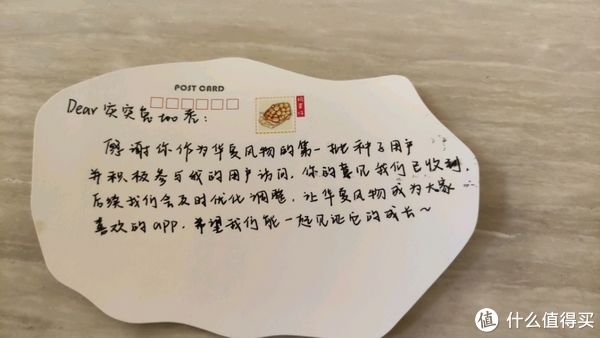 POST CARD
Dear 突突兔如来:
感谢你作为华夏风物的第一批种子用户
并积极参与我的用户访问,你的意见我们已收到,
后续我们会及时优化调整,让华夏风物成为大家
喜欢的app.希望我们能一起见证它的成长~
值 什么值得买